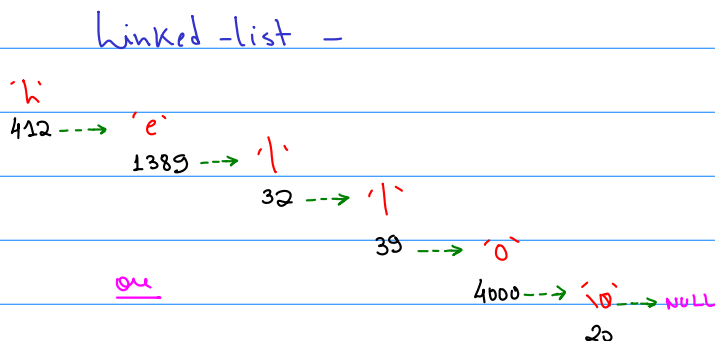 Linked-list -
'h'
412 ---> 'e'
1389 ---> 'l'
32 ---> 'l'
39 ---> 'o'
4000 ---> '\0' ---> NULL
ou
20